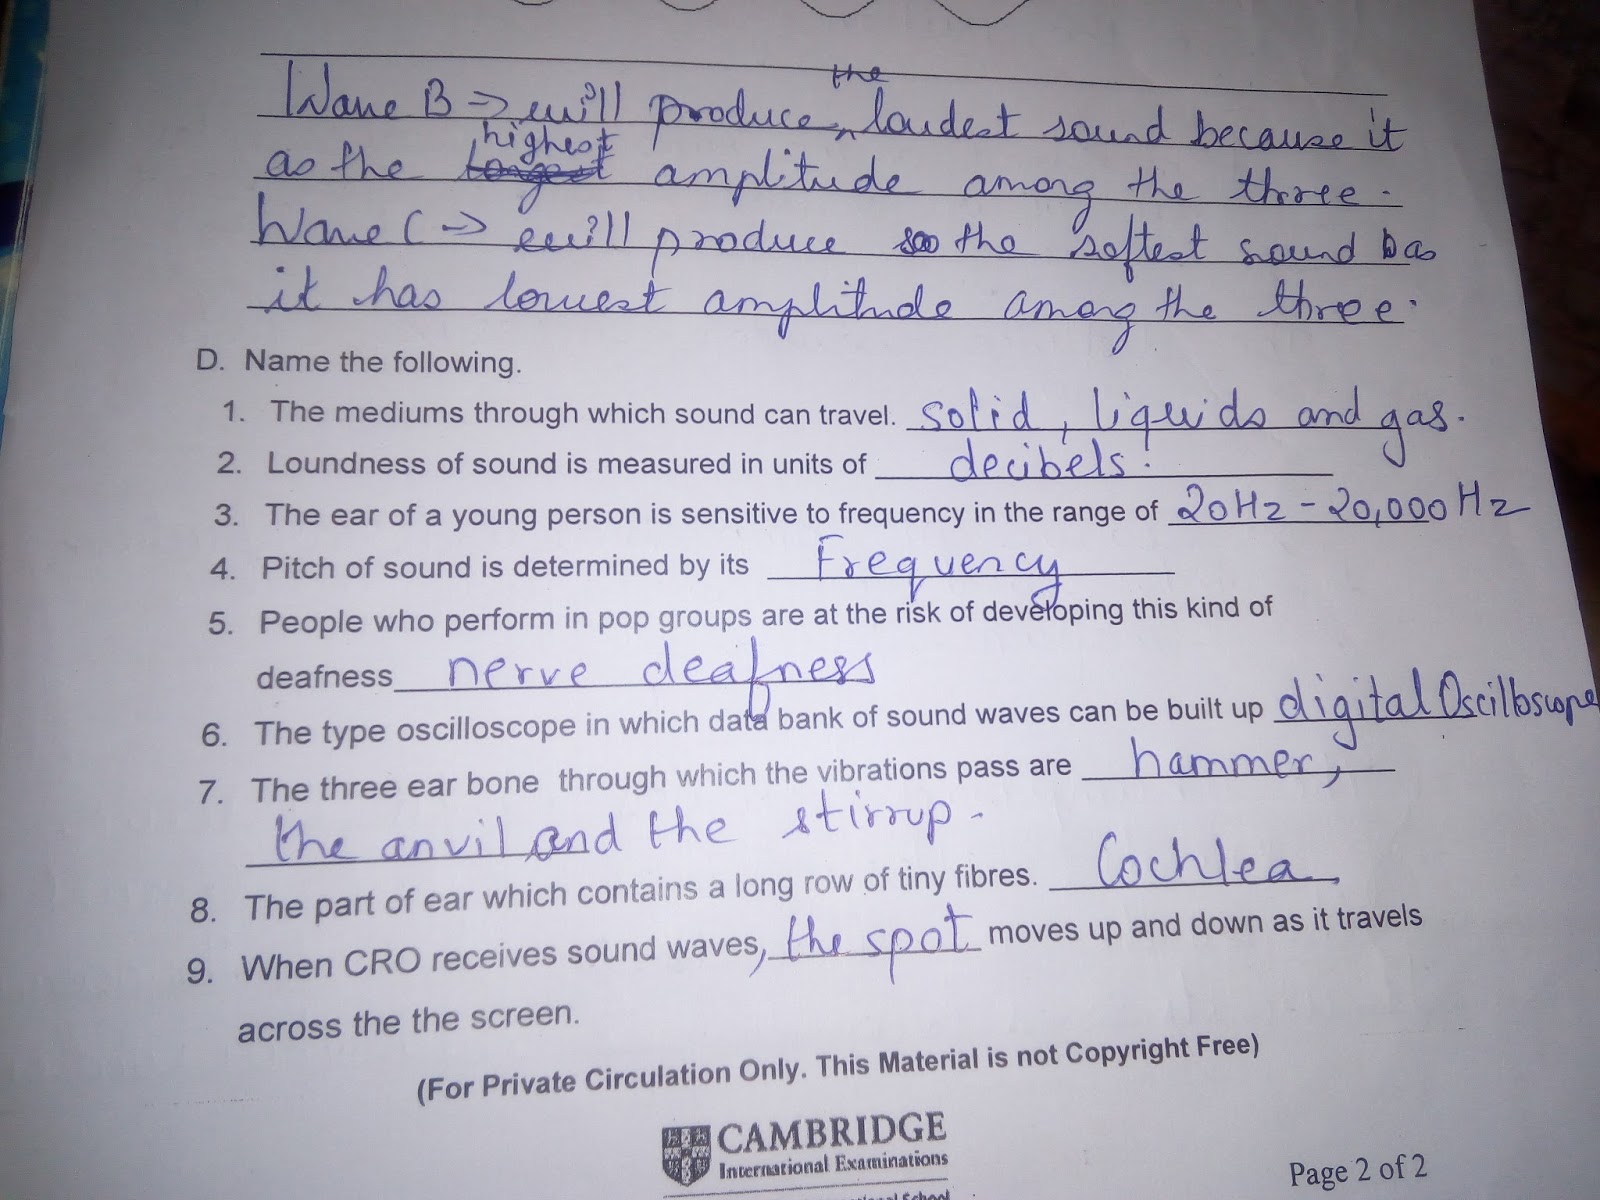 the
Wave B → will produce loudest sound because it
highest
as the longest amplitude among the three.
Wave C → will produce so the softest sound as
it has lowest amplitude among the three.
D. Name the following.
1. The mediums through which sound can travel. solid, liquids and gas.
2. Loundness of sound is measured in units of decibels.
3. The ear of a young person is sensitive to frequency in the range of 20Hz - 20,000 Hz
4. Pitch of sound is determined by its Frequency
5. People who perform in pop groups are at the risk of developing this kind of
deafness nerve deafness
6. The type oscilloscope in which data bank of sound waves can be built up digital Oscilloscope
7. The three ear bone through which the vibrations pass are hammer,
the anvil and the stirrup.
8. The part of ear which contains a long row of tiny fibres. Cochlea.
9. When CRO receives sound waves, the spot moves up and down as it travels
across the the screen.
(For Private Circulation Only. This Material is not Copyright Free)
CAMBRIDGE
International Examinations
Page 2 of 2